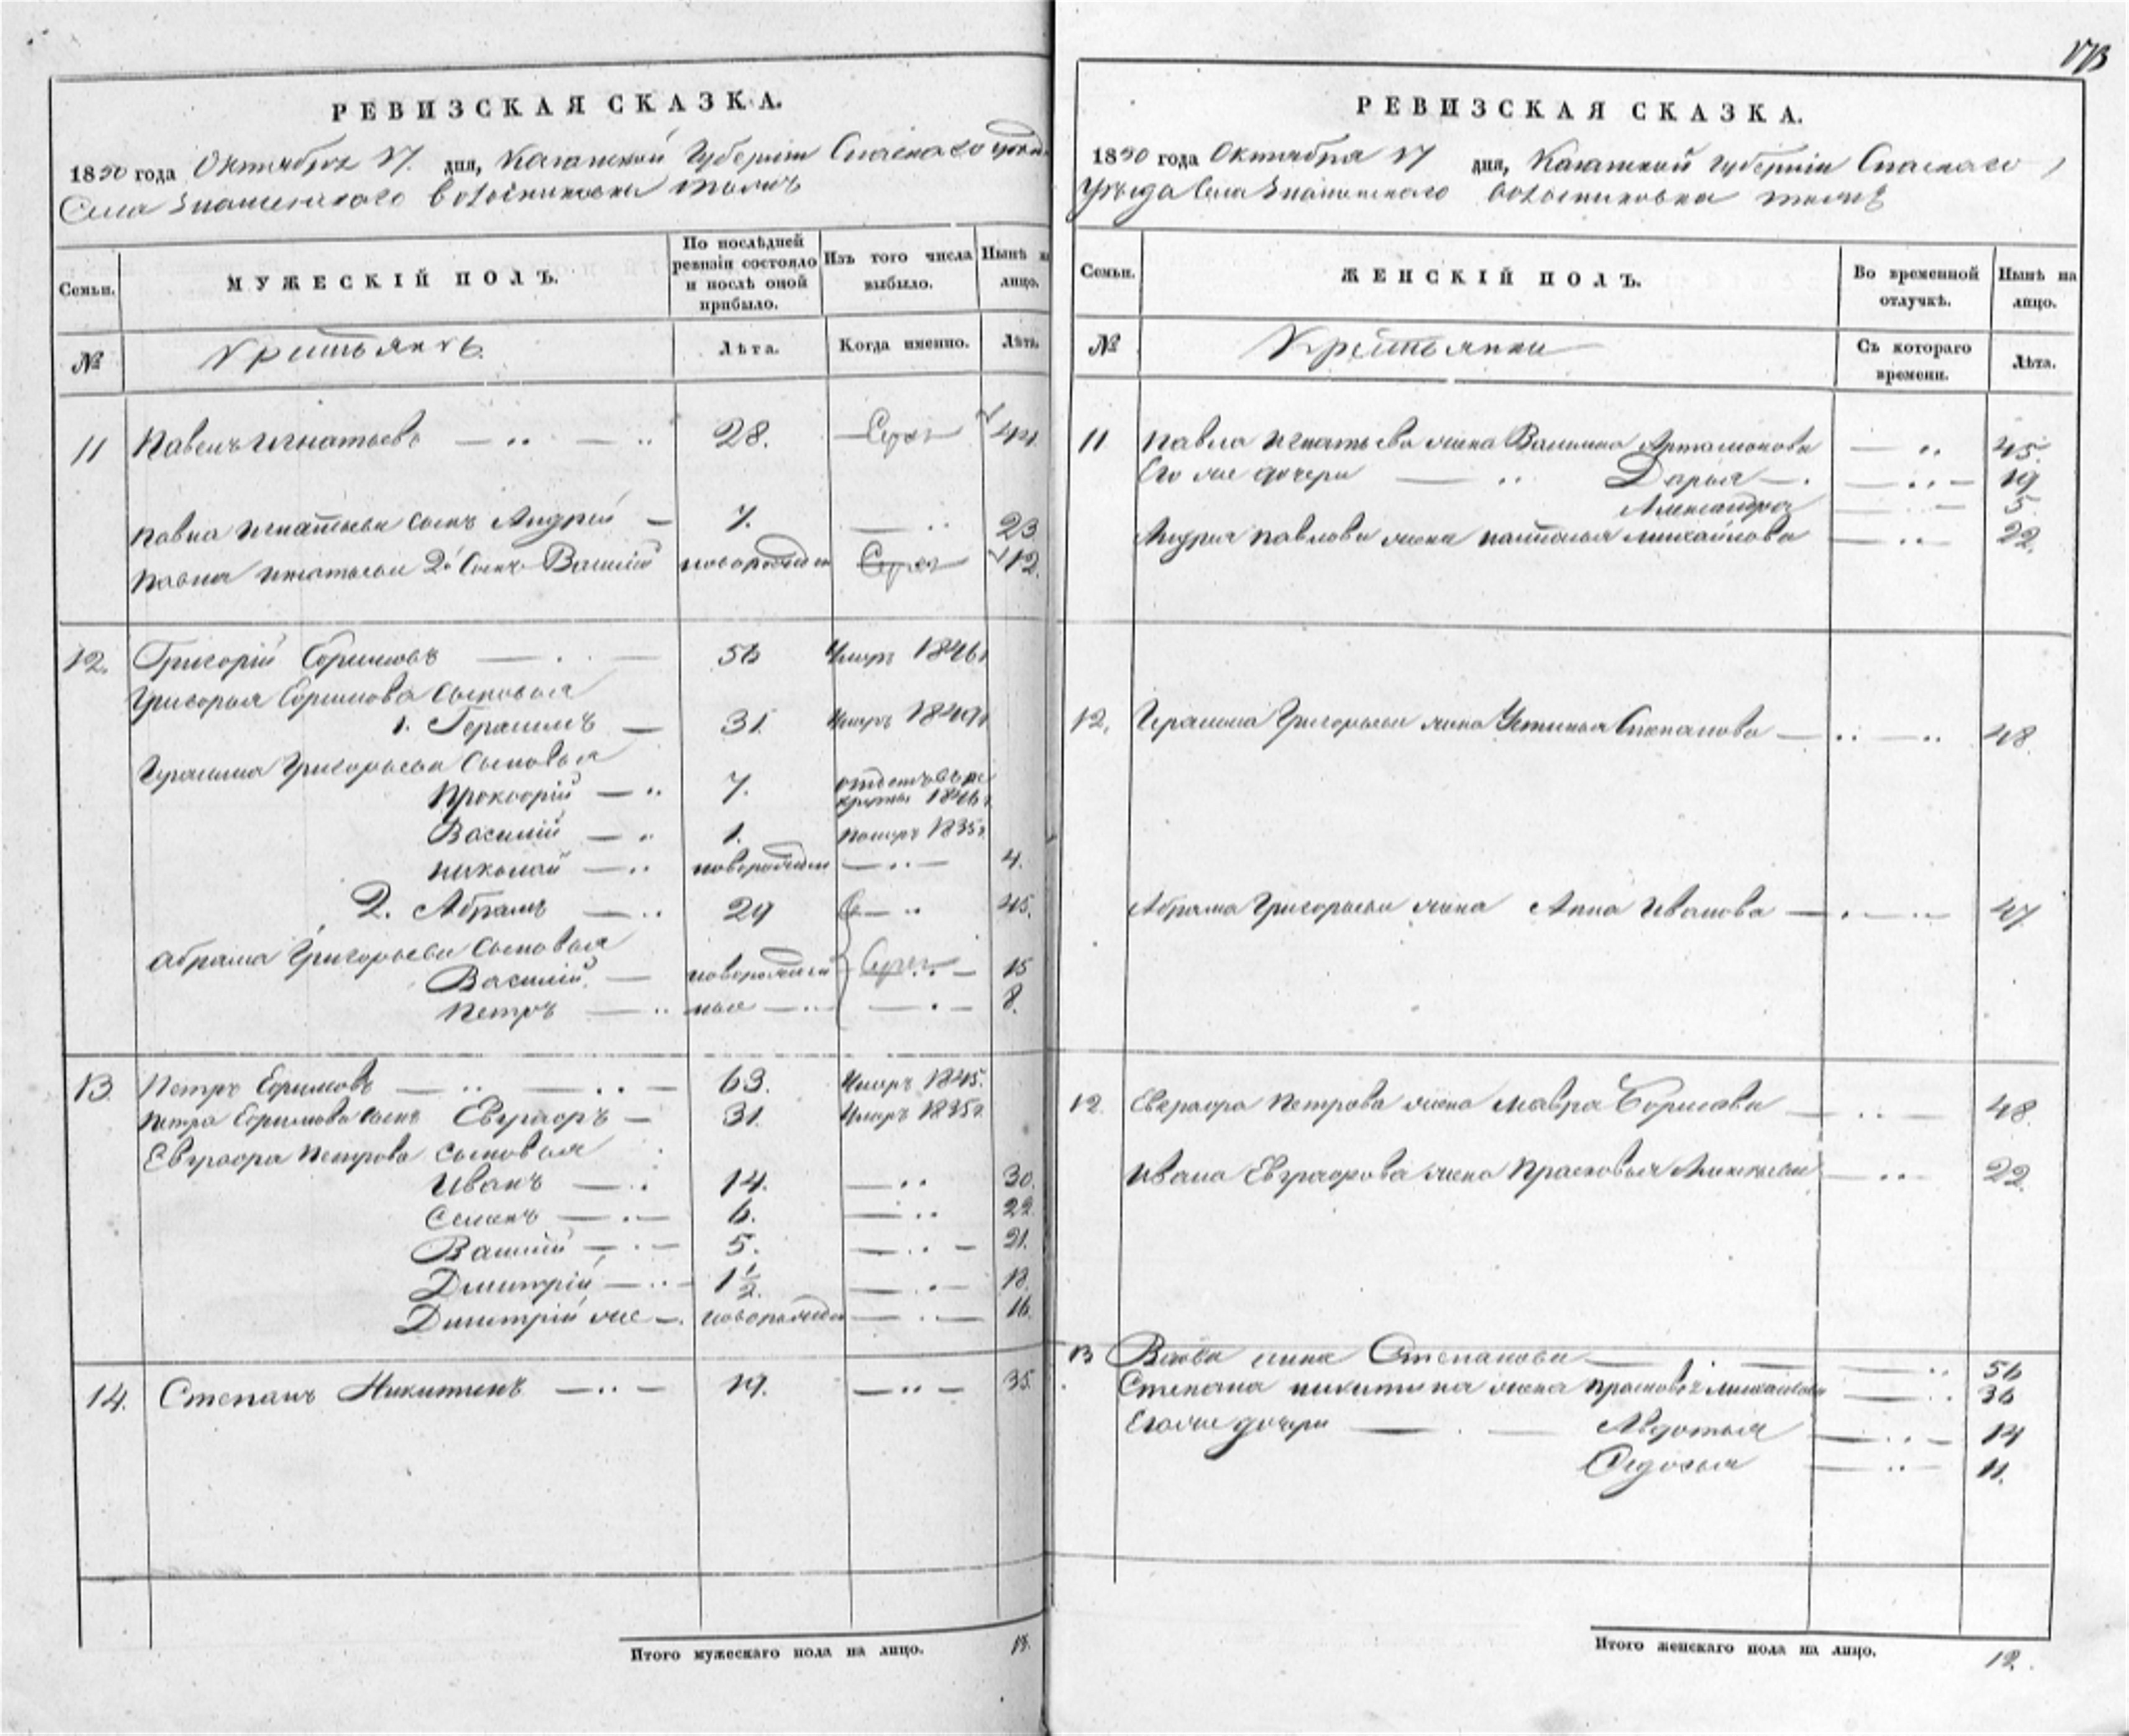 РЕВИЗСКАЯ СКАЗКА.
1850 года Октября 17. дня, Казанской Губернiи Спаскаго уезда
Села Знаменскаго тожъ
Семьи.
МУЖЕСКIЙ ПОЛЪ.
По послѣдней ревизiи состояло и послѣ оной прибыло.
Изъ того числа выбыло.
Нынѣ на лицо.
№
Крестьянъ
Лѣта.
Когда именно.
Лѣта.
11 Павелъ Игнатьевъ 28. 44.
Павла Игнатьева сынъ Андрей 7. 23
Павла Игнатьева 2й сынъ Василiй новорожден 12.
12. Григорiй Ефимовъ 56 Умеръ 1846г
Григорья Ефимова сыновья
1. Герасимъ 31. Умеръ 1849г
Герасима Григорьева сыновья
Прокофiй 7. 1846г
Василiй 1. померъ 1835г.
Николай новорожден 4.
2. Абрамъ 29 45.
Абрама Григорьева сыновья
Василiй новорожден 15
Петръ ные 8.
13. Петръ Ефимовъ 63. Умеръ 1845.
Петра Ефимова сынъ Евграфъ 31. Умеръ 1835г
Евграфа Петрова сыновья
Иванъ 14. 30.
Семенъ 6. 22.
Василiй 5. 21.
Дмитрiй 1 1/2. 18.
Дмитрiй же новорожден 16.
14. Степанъ Никитинъ 19. 35.
Итого мужескаго пола на лицо. 13.
173
РЕВИЗСКАЯ СКАЗКА.
1850 года Октября 17 дня, Казанской Губернiи Спаскаго
Уѣзда Села Знаменскаго тожъ
Семьи.
ЖЕНСКIЙ ПОЛЪ.
Во временной отлучкѣ.
Нынѣ на лицо.
№
Крестьянки
Съ котораго времени.
Лѣта.
11 Павла Игнатьева жена Артамонова 45.
Его же дочери Дарья 19
Александра 5.
Андрея Павлова жена Наталья Михайлова 22.
12. Герасима Григорьева жена Устинья Степанова 48.
Абрама Григорьева жена Анна Иванова 47
12. Евграфа Петрова жена Мавра Борисова 48.
Ивана Евграфова жена Прасковья 22.
13 Степанова 56
Степана Никитина жена Прасковья Михайлова 36
Его же дочери Авдотья 14
Федосья 11.
Итого женскаго пола на лицо. 12.